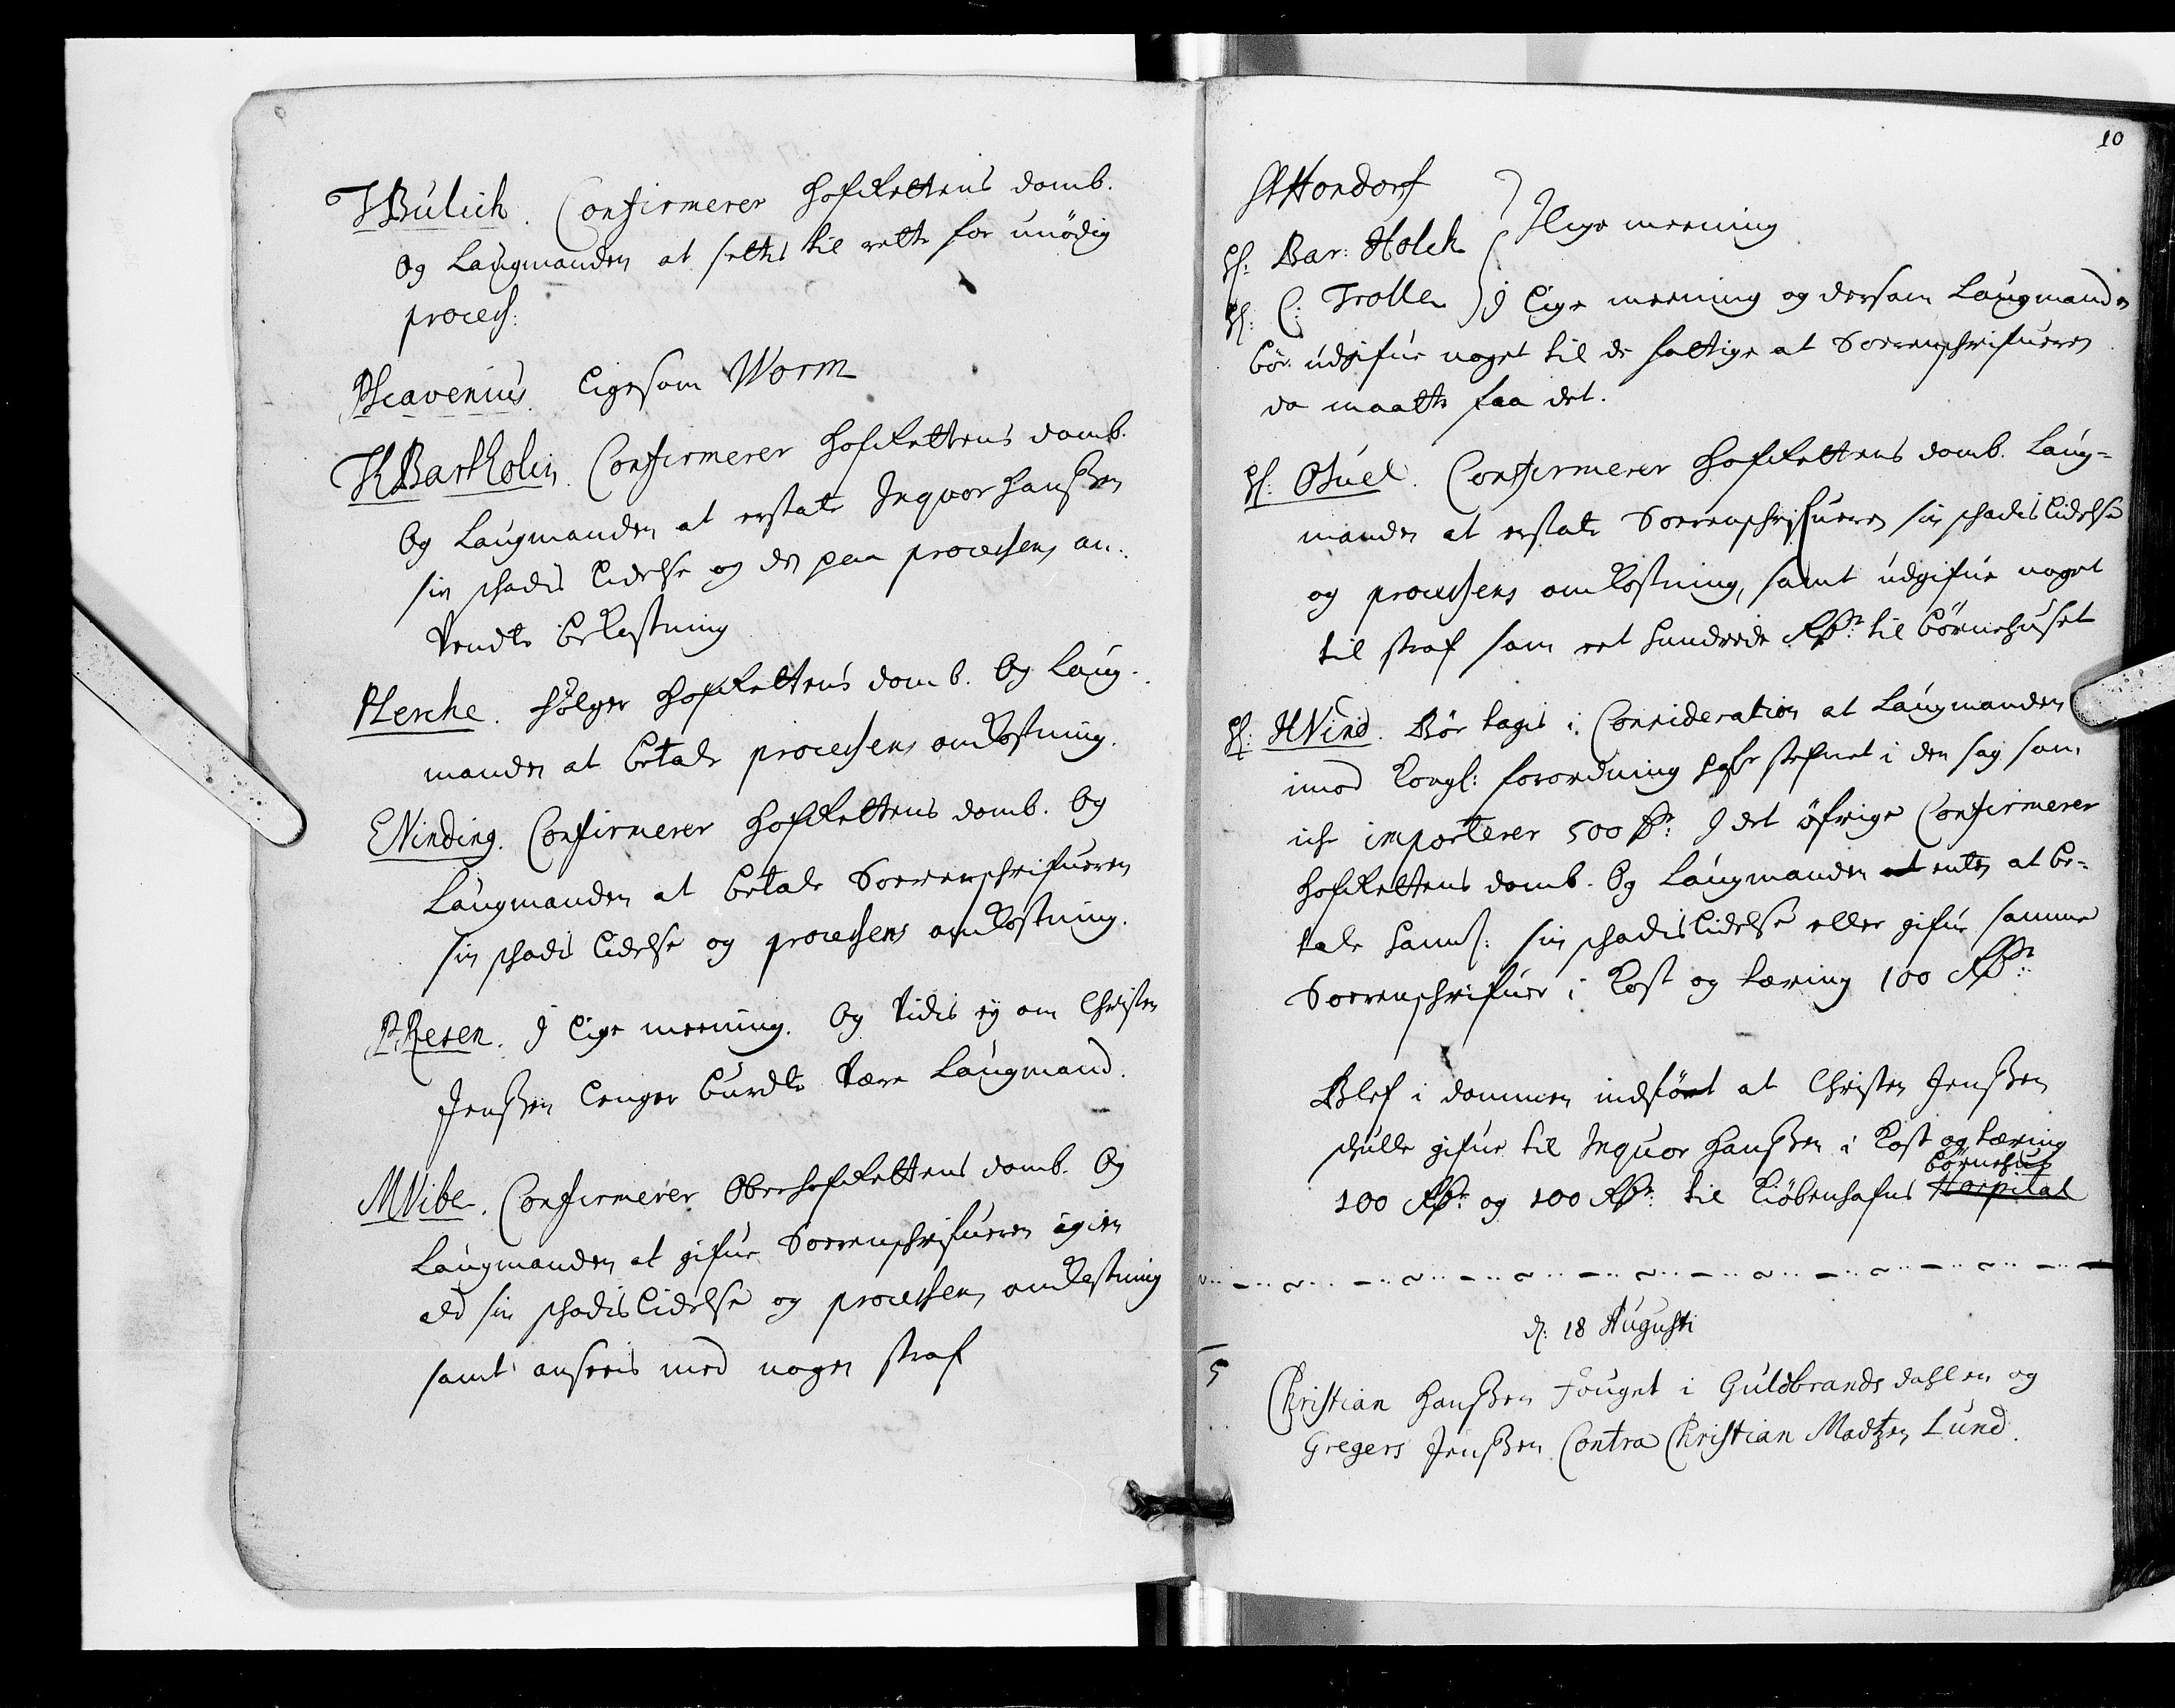 TBülich. Confirmerer HofRettens domb.
Og Laugmanden at settis til rette for unødig
process:
PScavenius. Ligesom Worm
TBartholin. Confirmerer HofRettens domb.
Og Laugmanden at erstate Inguor Hanssen
sin schadis lidelse og den paa processen an-
vendte bekostning
PLerche. følger HofRettens domb. Og Laug-
manden at betale processens omkostning.
EVinding. Confirmerer HofRettens domb. Og
Laugmanden at betale Sorrenschrifueren
sin schadis lidelse og processens omkostning.
PResen. I lige meening. Og vidis ej om Christen
Jenssen lenger burdte være Laugmand.
MVibe. Confirmerer OberhofRettens domb. Og
Laugmanden at gifue Sorrenschrifueren igien
ald sin schadislidelse og processens omkostning
samt ansees med nogen straf
10
Hondorf
H: Bar: Holck
I lige meening
H: C: Trolle I lige meening og dersom Laugmanden
bør udgifue noget til de fattige at Sorrenschrifueren
da maatte faa det.
H: OJuel. Confirmerer HofRettens domb. Laug-
manden at erstate Sorrenschrifueren sin schadislidelse
og processens omkostning, samt udgifue noget
til straf som eet hundrede Rdr: til børnehuset
H: HVind. Bør tages i Consideration at Laugmanden
imod Kongl: forordning stefnet i den sag som
icke importerer 500 dr: I det øfrige Confirmerer
HofRettens domb. Og Laugmanden at enten at be-
tale hannem: sin schadislidelse eller gifue samme
Sorrenschrifuer i Kost og tæring 100 Rdr:
Blef i dommen indført at Christen Jenssen
skulle gifue til Inguor Hanssen i Kost og tæring
børnehus
100 Rdr: og 100 Rdr: til Kiøbenhafns Hospital
d: 18 Augusti
5
Christian Hanssen Fouget i Guldbrandsdahlen og
Gregers Jenssen Contra Christian Madtzen Lund.